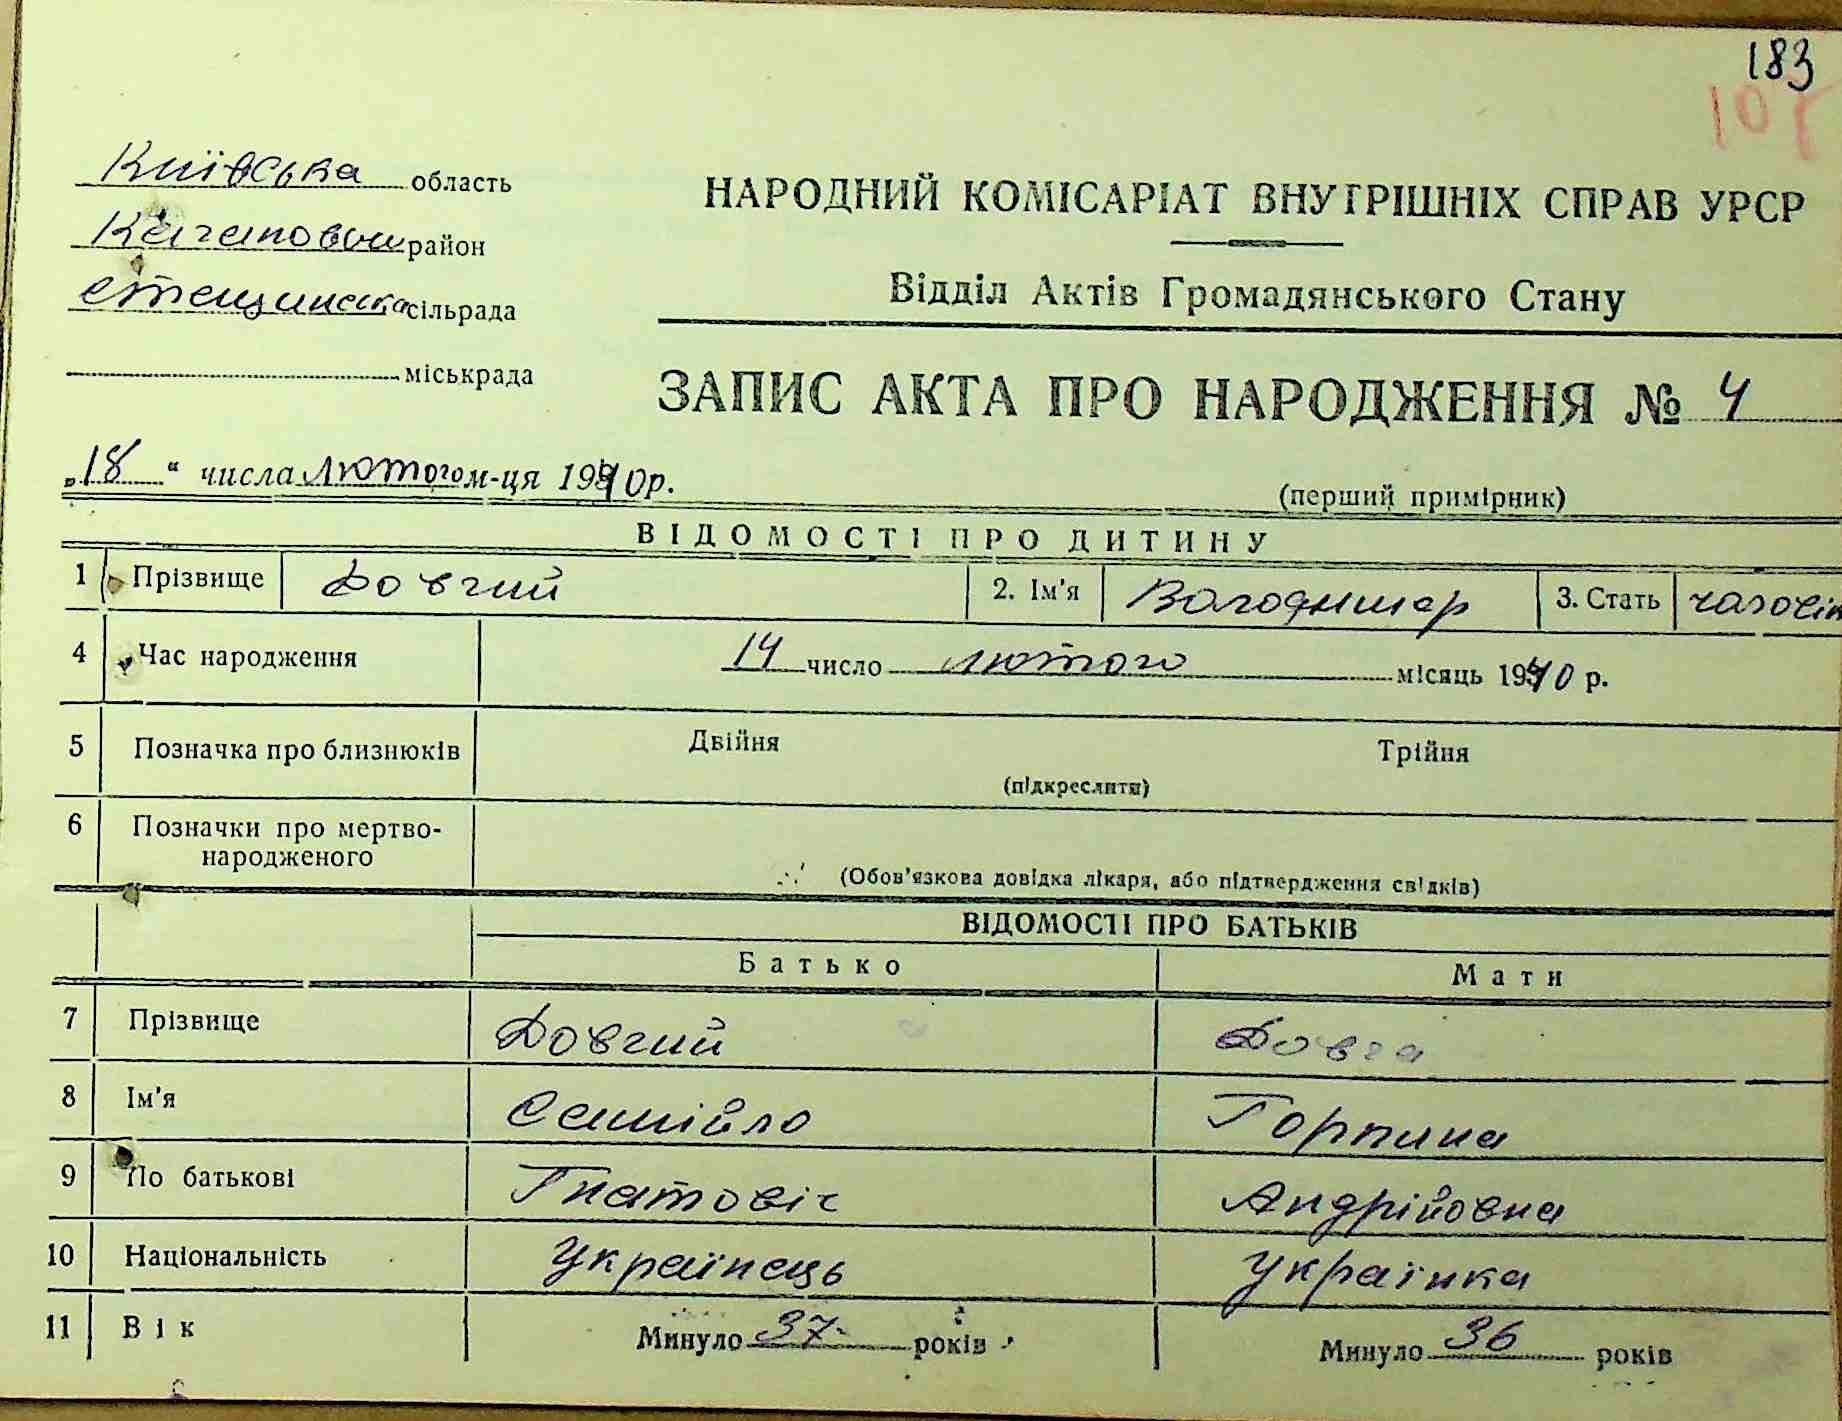 183
Київська область
НАРОДНИЙ КОМІСАРІАТ ВНУТРІШНІХ СПРАВ УРСР
Каганович район
Стещинська сільрада
Відділ Актів Громадянського Стану
міськрада
ЗАПИС АКТА ПРО НАРОДЖЕННЯ № 4
„18“ числа лютого м-ця 1940 р.
(перший примірник)
ВІДОМОСТІ ПРО ДИТИНУ
1 Прізвище Довгий 2. Ім'я Володимер 3. Стать
4 Час народження 14 число лютого місяць 1940 р.
5 Позначка про близнюків Двійня Трійня
(підкреслити)
6 Позначки про мертво-
народженого
(Обов'язкова довідка лікаря, або підтвердження свідків)
ВІДОМОСТІ ПРО БАТЬКІВ
Батько Мати
7 Прізвище Довгий Довга
8 Ім'я Самійло Горпина
9 По батькові Гнатовіч Андрійовна
10 Національність Українець Українка
11 Вік Минуло 37 років Минуло 36 років